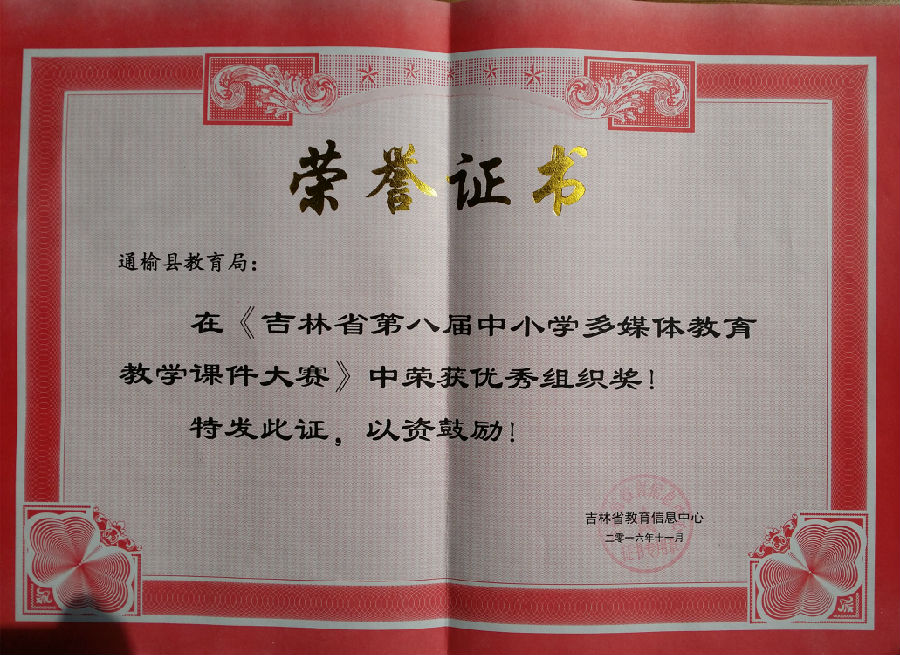 荣誉证书
通榆县教育局：
在《吉林省第八届中小学多媒体教育
教学课件大赛》中荣获优秀组织奖！
特发此证，以资鼓励！
吉林省教育信息中心
二零一六年十一月
证书专用章